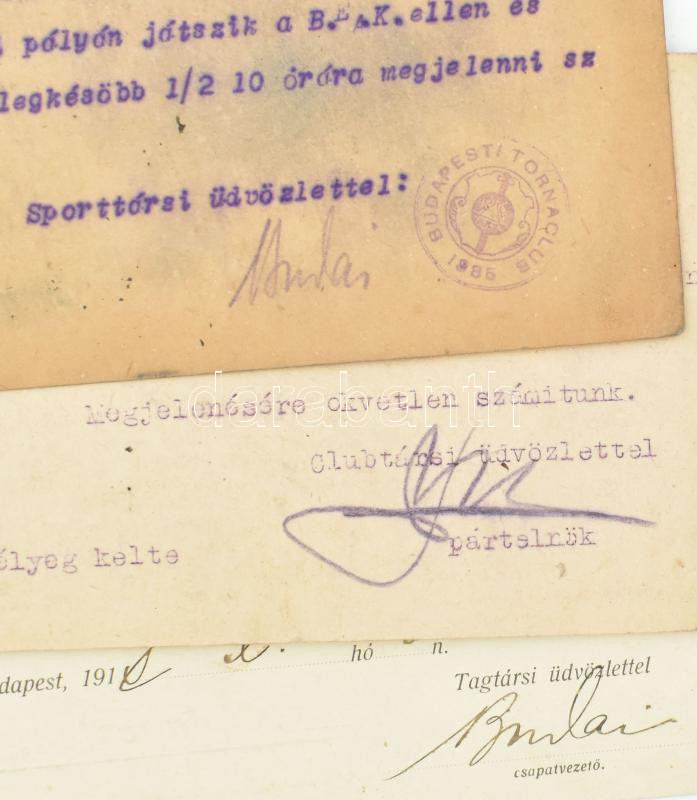 pályán játszik a B.EAK.ellen és
legkésöbb 1/2 10 órára megjelenni sz
Sporttársi üdvözlettel:
BUDAPESTI TORNACLUB
1885
Budai
Megjelenésére okvetlen számitunk.
Clubtársi üdvözlettel
pártelnök
élyeg kelte
dapest, 191 X. hó n.
Tagtársi üdvözlettel
Budai
csapatvezető.
darabanth